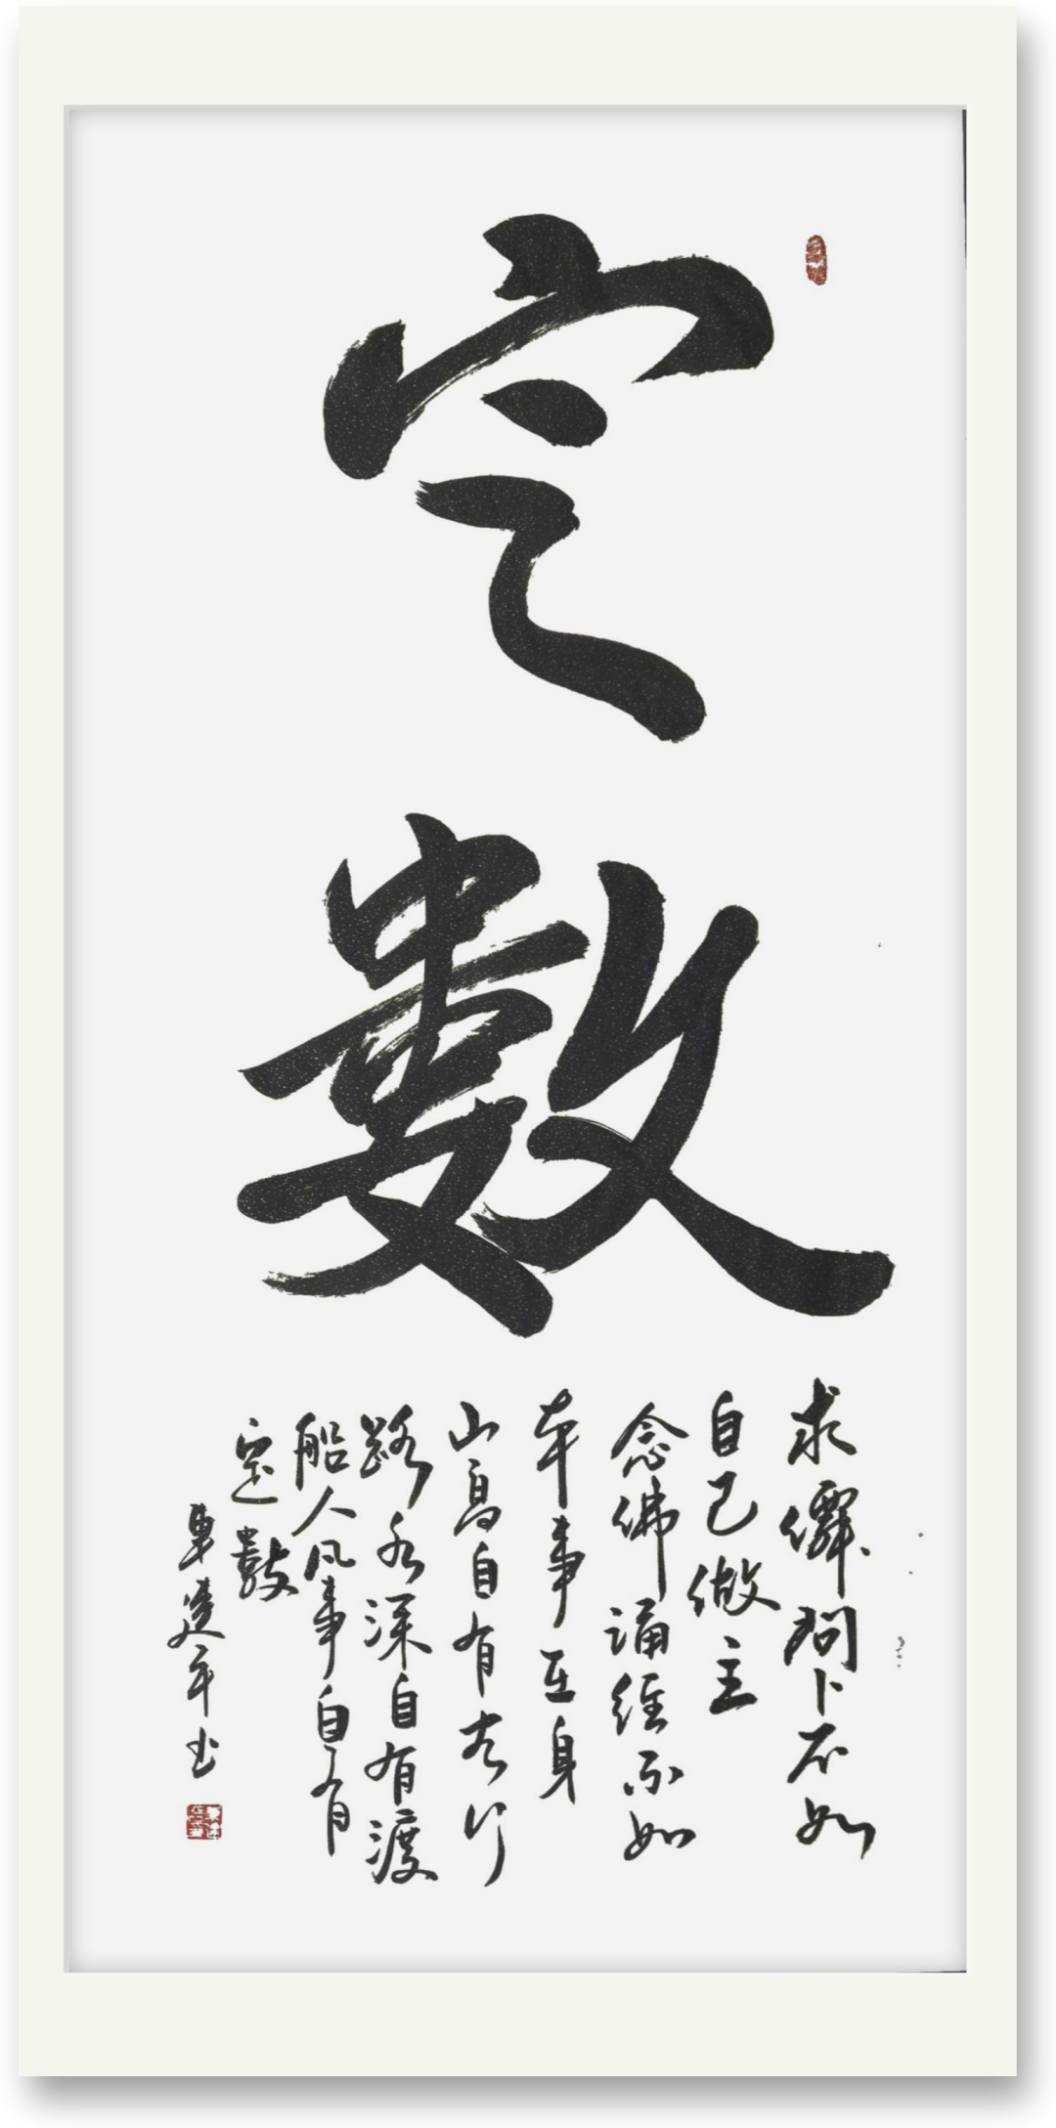 定數
求僊問卜不如
自己做主
念佛誦經不如
本事在身
山高自有客行
路水深自有渡
船人凡事自有
定數
車建平书